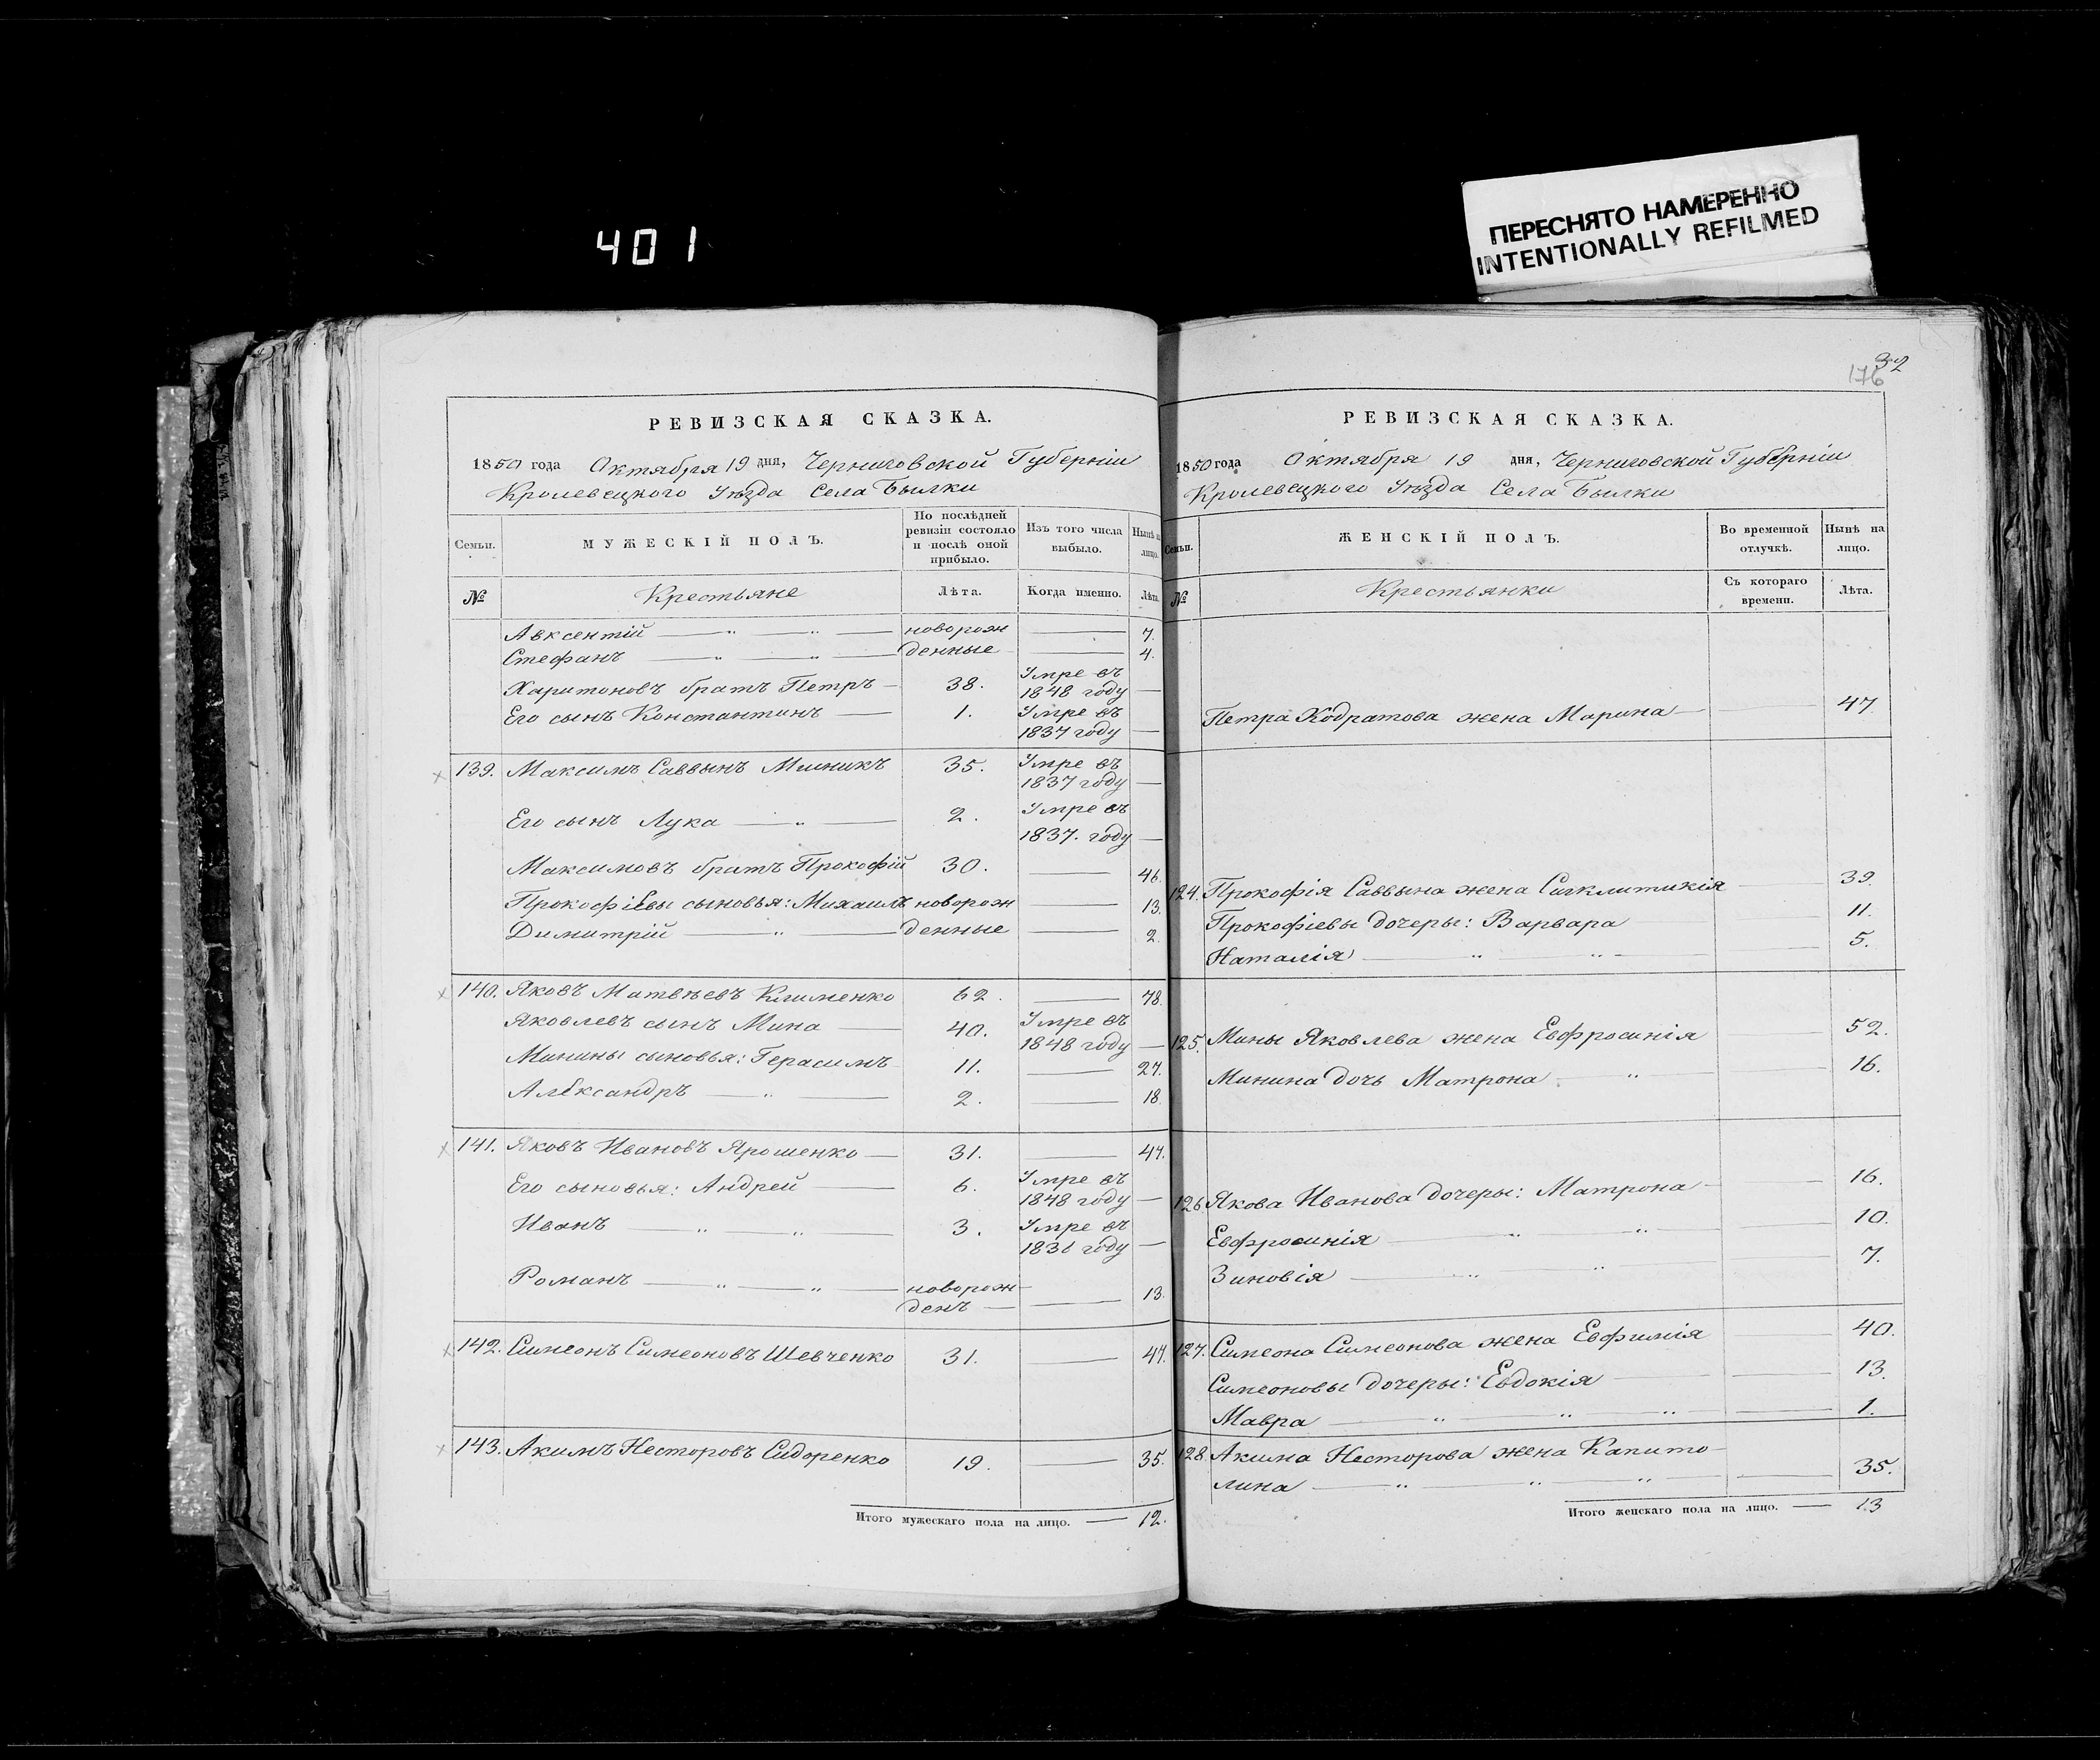 401
ПЕРЕСНЯТО НАМЕРЕННО
INTENTIONALLY REFILMED
РЕВИЗСКАЯ СКАЗКА.
1850 года Октября 19 дня, Черниговской Губерніи
Кролевецкого Уѣзда Села Былки
Семьи. МУЖЕСКІЙ ПОЛЪ. По послѣдней ревизіи состояло и послѣ оной прибыло. Изъ того числа выбыло. Нынѣ на лицо.
№ Крестьяне Лѣта. Когда именно. Лѣта.
Авксентій — " — " — новорож — 7.
Стефанъ — " — " — денные — 4.
Харитоновъ братъ Петръ — 38. Умре въ 1848 году —
Его сынъ Константинъ — 1. Умре въ 1837 году —
139. Максимъ Саввинъ Мишикъ 35. Умре въ 1837 году —
Его сынъ Лука — " — 2. Умре въ 1837. году —
Максимовъ братъ Прокофій 30. — 46.
Прокофіевы сыновья: Михаилъ новорож — 13.
Димитрій — " — денные — 2.
140. Яковъ Матвѣевъ Клименко 62. — 78.
Яковлевъ сынъ Мина — 40. Умре въ 1848 году —
Минины сыновья: Герасимъ 11. — 27.
Александръ — " — 2. — 18
141. Яковъ Ивановъ Ярошенко — 31. — 47.
Его сыновья: Андрей — 6. Умре въ 1848 году —
Иванъ — " — " — 3. Умре въ 1836 году —
Романъ — " — " — новорож-денъ — — 13.
142. Симеонъ Симеоновъ Шевченко 31. — 47.
143. Акимъ Несторовъ Сидоренко 19. — 35.
Итого мужескаго пола на лицо. — 12.
32
176
РЕВИЗСКАЯ СКАЗКА.
1850 года Октября 19 дня, Черниговской Губерніи
Кролевецкого Уѣзда Села Былки
Семьи. ЖЕНСКІЙ ПОЛЪ. Во временной отлучкѣ. Нынѣ на лицо.
№ Крестьянки Съ котораго времени. Лѣта.
Петра Кодратова жена Марина — — 47.
124. Прокофія Саввина жена Сигклитикія — 39.
Прокофіевы дочеры: Варвара 11.
Наталія — " — " — 5.
125. Мины Яковлева жена Евфросинія — 52.
Минина дочь Матрона — " — 16.
126. Якова Иванова дочеры: Матрона — 16.
Евфросинія — " — " — 10.
Зиновія — " — " — 7.
127. Симеона Симеонова жена Евфимія — 40.
Симеоновы дочеры: Евдокія — 13.
Мавра — " — " — " — 1.
128. Акима Несторова жена Капито-
лина — " — " — " — 35.
Итого женскаго пола на лицо. — 13